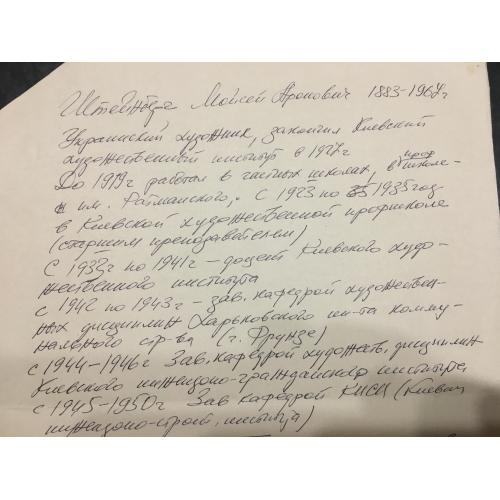 Штейнберг Моисей Аронович 1883-1967г
Украинский художник, закончил Киевский
художественный институт в 1927г
До 1919г работал в частных школах, в проф школе-
им. Райманского, С 1923 по 1935 год
в Киевской художественной профшколе
(старшим преподавателем)
С 1932г по 1941г - доцент Киевского худо-
жественного института
с 1942 по 1943г - зав. кафедрой художествен-
ных дисциплин Харьковского ин-та комму-
нального стр-ва (г. Фрунзе)
с 1944-1946г Зав. кафедрой художеств. дисциплин
Киевского инженерно-гражданского института
с 1945-1950г Зав кафедрой КИСИ (Киевск
инженерно-строит. института)